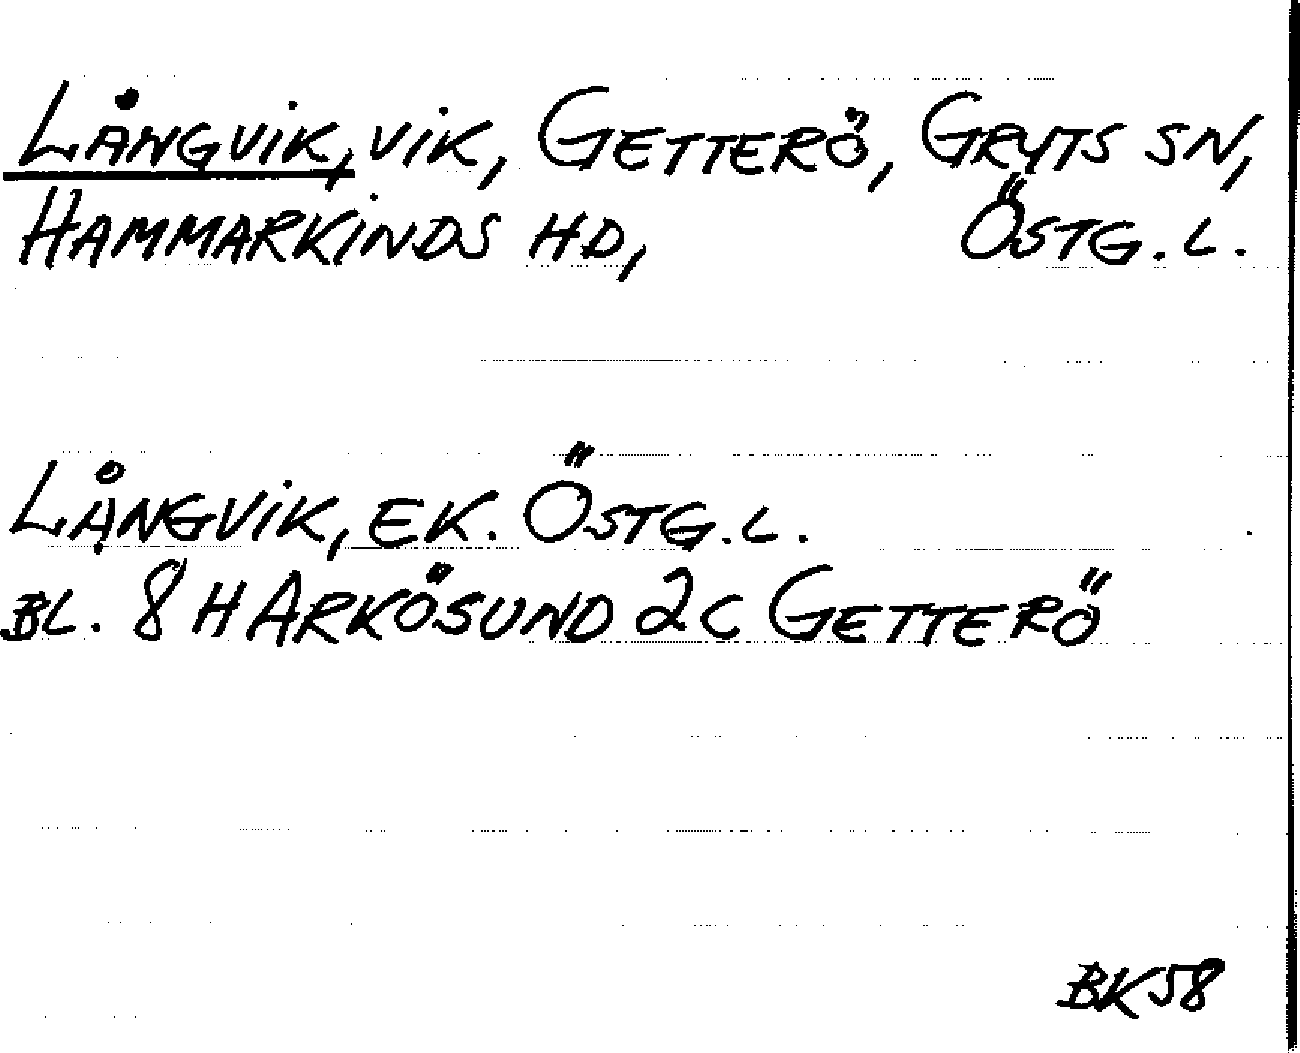 LÅNGVIK, VIK, GETTERÖ, GRYTS SN,
HAMMARKINDS HD, ÖSTG. L.
LÅNGVIK, EK. ÖSTG. L.
BL. 8 H ARKÖSUND 2C GETTERÖ
BK58